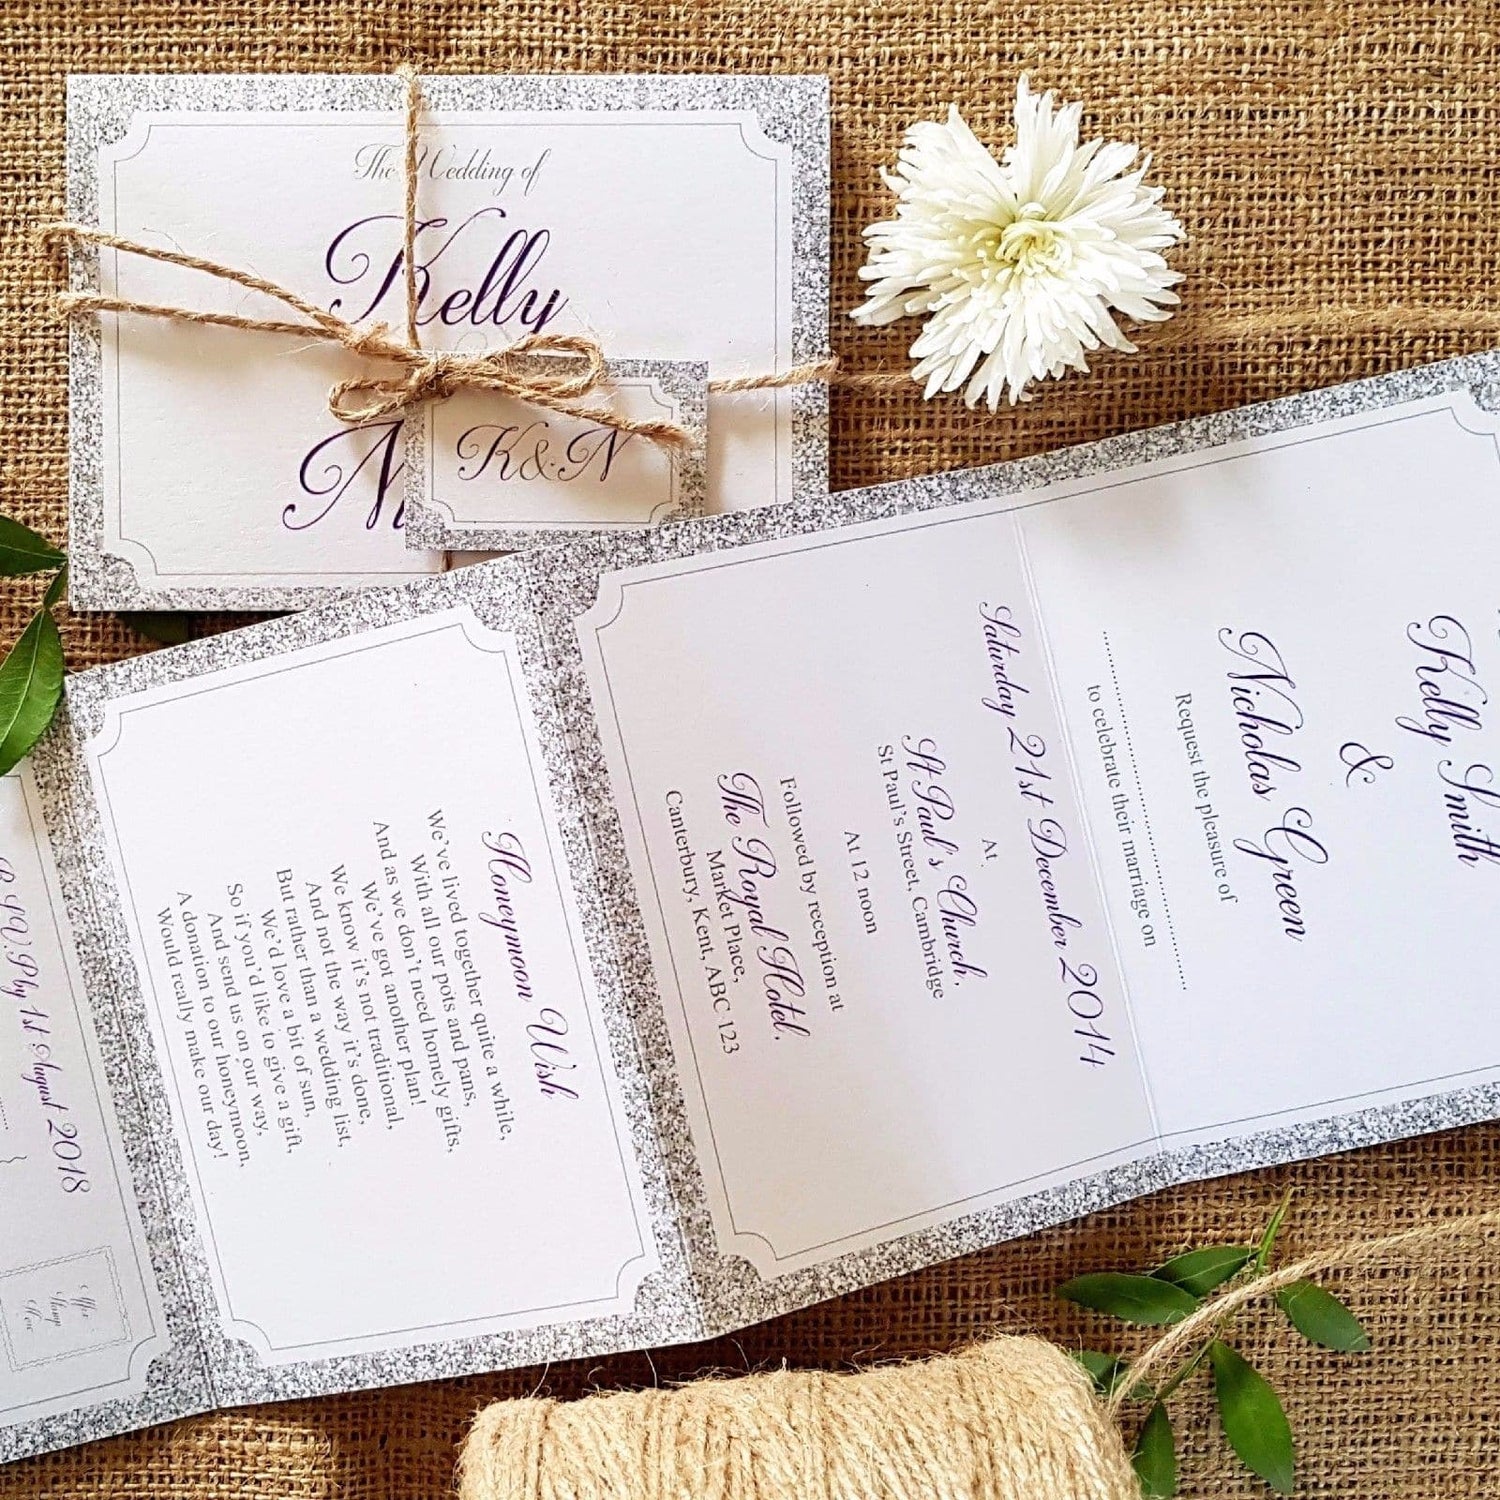 The Wedding of
Kelly
K&N
Kelly Smith
&
Nicholas Green
Request the pleasure of
to celebrate their marriage on
Saturday 21st December 2014
At
St Paul's Church,
St Paul's Street, Cambridge
At 12 noon
Followed by reception at
The Royal Hotel,
Market Place,
Canterbury, Kent, ABC 123
Honeymoon Wish
We've lived together quite a while,
With all our pots and pans,
And as we don't need homely gifts,
We've got another plan!
We know it's not traditional,
And not the way it's done,
But rather than a wedding list,
We'd love a bit of sun,
So if you'd like to give a gift,
And send us on our way,
A donation to our honeymoon,
Would really make our day!
by 1st August 2018
Affix
Stamp
Here